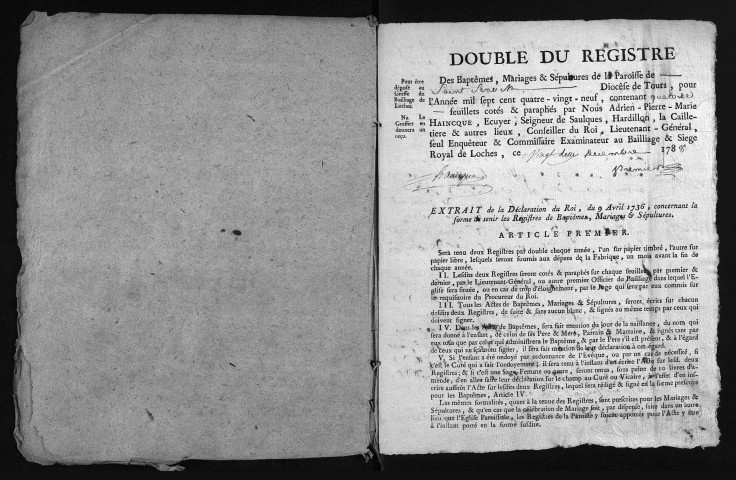 DOUBLE DU REGISTRE
Pour être
déposé au
Greffe du
Bailliage de
Loches.
Na. Le
Greffier en
donnera un
reçu.
Des Baptêmes, Mariages & Sépultures de la Paroisse de
Saint Senoch Diocèse de Tours, pour
l'Année mil sept cent quatre-vingt-neuf, contenant quatorze
feuillets cotés & paraphés par Nous Adrien-Pierre-Marie
HAINCQUE, Ecuyer, Seigneur de Saulques, Hardillon, la Caille-
tiere & autres lieux, Conseiller du Roi, Lieutenant-Général,
seul Enquêteur & Commissaire Examinateur au Bailliage & Siege
Royal de Loches, ce Vingt deux Decembre 1788
haincque Premier
EXTRAIT de la Déclaration du Roi, du 9 Avril 1736, concernant la
forme de tenir les Registres de Baptêmes, Mariages & Sépultures.
ARTICLE PREMIER.
Sera tenu deux Registres par double chaque année, l'un sur papier timbré, l'autre sur
papier libre, lesquels seront fournis aux dépens de la Fabrique, un mois avant la fin de
chaque année.
II. Lesdits deux Registres seront cotés & paraphés sur chaque feuillet, par premier &
dernier, par le Lieutenant-Général, ou autre premier Officier du Bailliage dans lequel l'E-
glise sera située, ou en cas de trop d'éloignement, par le Juge qui sera par eux commis sur
le requisitoire du Procureur du Roi.
III. Tous les Actes de Baptêmes, Mariages & Sépultures, seront écrits sur chacun
desdits deux Registres, de suite & sans aucun blanc, & signés au même temps par ceux qui
doivent signer.
IV. Dans les Actes de Baptêmes, sera fait mention du jour de la naissance, du nom qui
sera donné à l'enfant, de celui de ses Pere & Mere, Parrain & Marraine, & signés tant par
eux tous que par celui qui administrera le Baptême, & par le Pere s'il est présent, & à l'égard
de ceux qui ne sçauront signer, il sera fait mention de leur déclaration à cet égard.
V. Si l'enfant a été ondoyé par ordonnance de l'Evêque, ou par un cas de nécessité, si
c'est le Curé qui a fait l'ondoyement; il sera tenu à l'instant d'en écrire l'Acte sur lesd. deux
Registres; & si c'est une Sage Femme ou autre, seront tenus, sous peine de 10 livres d'a-
mende, d'en aller faire leur déclaration sur le champ au Curé ou Vicaire, à l'effet d'en ins-
crire aussitôt l'Acte sur lesdits deux Registres, lequel sera rédigé & signé en la forme prescrite
pour les Baptêmes, Article IV.
Les mêmes formalités, quant à la tenue des Registres, sont prescrites pour les Mariages &
Sépultures, & qu'en cas que la célébration de Mariage soit, par dispense, faite dans un autre
lieu que l'Eglise Paroissiale, les Registres de la Paroisse y soient apportés pour l'Acte y être
à l'instant porté en la forme susdite.